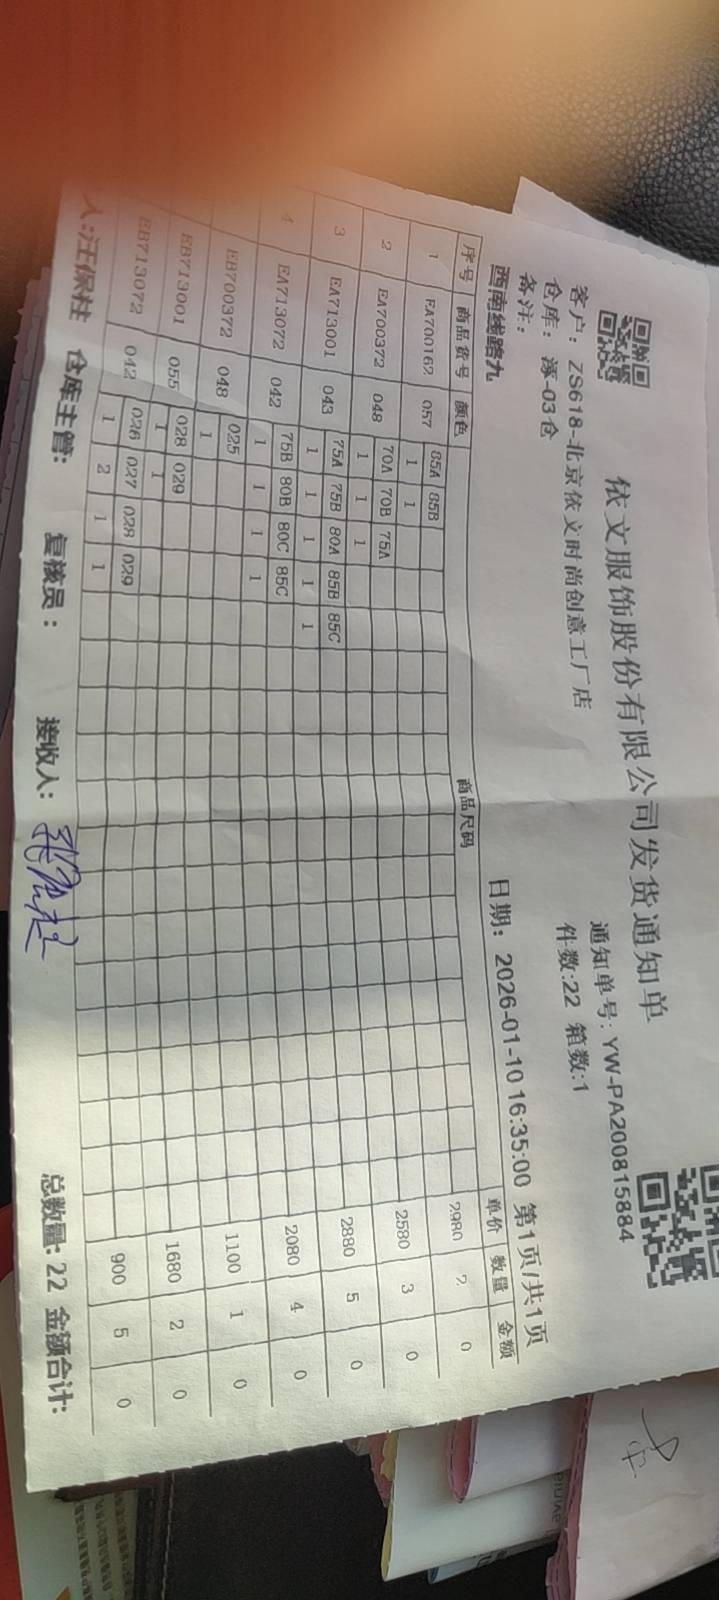 依文服饰股份有限公司发货通知单
通知单号: YW-PA200815884
客户: ZS618-北京依文时尚创意工厂店
件数:22 箱数:1
仓库: 涿-03仓
备注:
西南线路九
日期: 2026-01-10 16:35:00 第1页/共1页
序号 商品货号 颜色 商品尺码 单价 数量 金额
85A 85B
1 EA700162 057 1 1 2980 2 0
70A 70B 75A
2 EA700372 048 1 1 1 2580 3 0
75A 75B 80A 85B 85C
3 EA713001 043 1 1 1 1 1 2880 5 0
75B 80B 80C 85C
4 EA713072 042 1 1 1 1 2080 4 0
025
EB700372 048 1 1100 1 0
028 029
EB713001 055 1 1 1680 2 0
026 027 028 029
EB713072 042 1 2 1 1 900 5 0
总数量: 22 金额合计:
人:汪保柱 仓库主管: 复核员: 接收人: